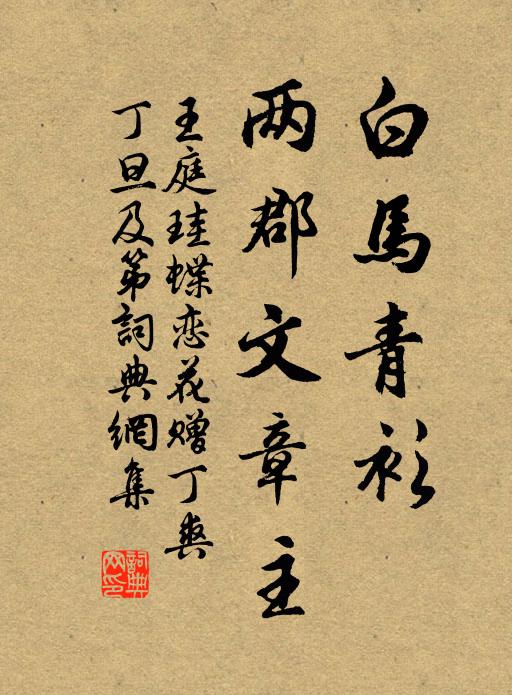 白馬青衫
两郡文章主
王庭珪蝶恋花赠丁爽
丁旦及第詞典網集
詞典網印